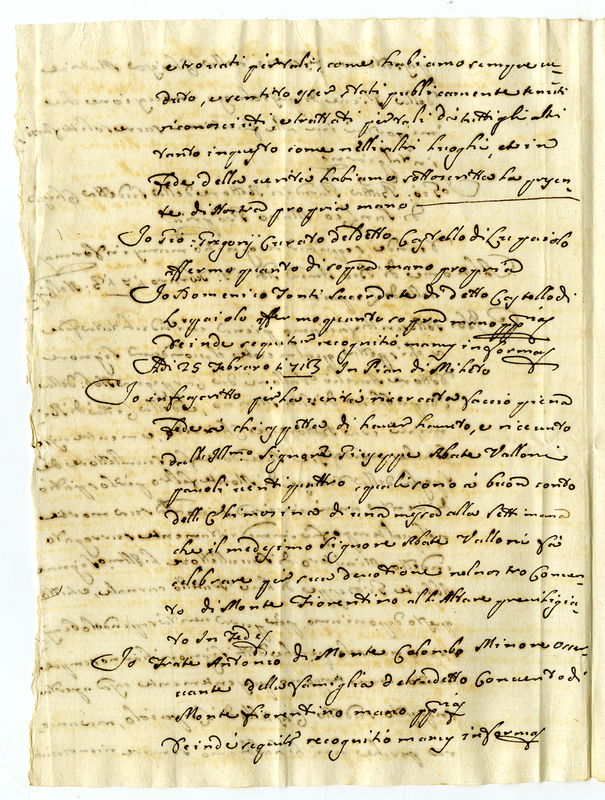 e trovati per tali, come habiamo sempre ve=
duto, e sentito esser stati publicamente tenuti
riconosciuti e trattati per tali da tutti gli altri
tanto in questo come nell'altri luoghi, et in
fede della verità habiamo sottoscritta la presen=
te di Nostra propria mano
Io Gio: Gregorij Curato del detto Castello di Lupaiolo
affermo quanto di sopra mano propria
Io Domenico Tonti Sacerdote di detto Castello di
Lupaiolo affermo quanto sopra mano pp.ria
Deinde sequitur recognitio manus in forma
Adi 25 Febraro 1713 In Pian di Meleto
Io infrascritto per la verità ricercato faccio piena
fede a chi spetta di haver havuto, e ricevuto
dall Illmo Signore Giuseppe Abate Valloni
pauoli venti quattro quali sono à buon conto
dell Elimosina di una messa alla settimana
che il medesimo Signore Abate Valloni fà
celebrare per sua devotione nel nostro Conven=
to di Monte Fiorentino al'Altare previligia=
to In Fede
Io Frate Antonio di Monte Colombo Minore Osser=
vante della famiglia del sudetto Convento di
Monte fiorentino mano pp.ria
Deinde sequitr recognitio manus in forma